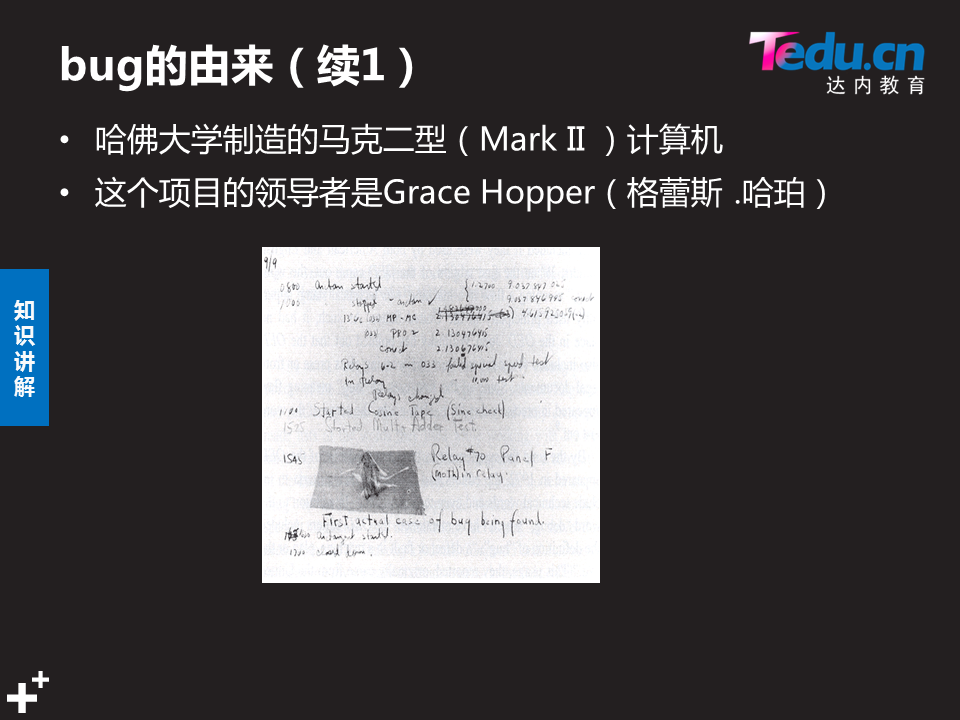 bug的由来（续1）
Tedu.cn
达内教育
• 哈佛大学制造的马克二型（Mark II ）计算机
• 这个项目的领导者是Grace Hopper（格蕾斯 .哈珀）
知识讲解
9/9
0800 antan started
1000 stopped - antan ✓
13"06 (032) MP-MC
033 PRO.2 2.130476415
correct 2.130676415
Relays 6-2 in 033 failed special speed test
in relay 10,000 test.
Relays changed
1100 Started Cosine Tape (Sine check)
1525 Started Mult+Adder Test.
1545 Relay #70 Panel F
(moth) in relay.
First actual case of bug being found.
antangent started.
1700 closed down.